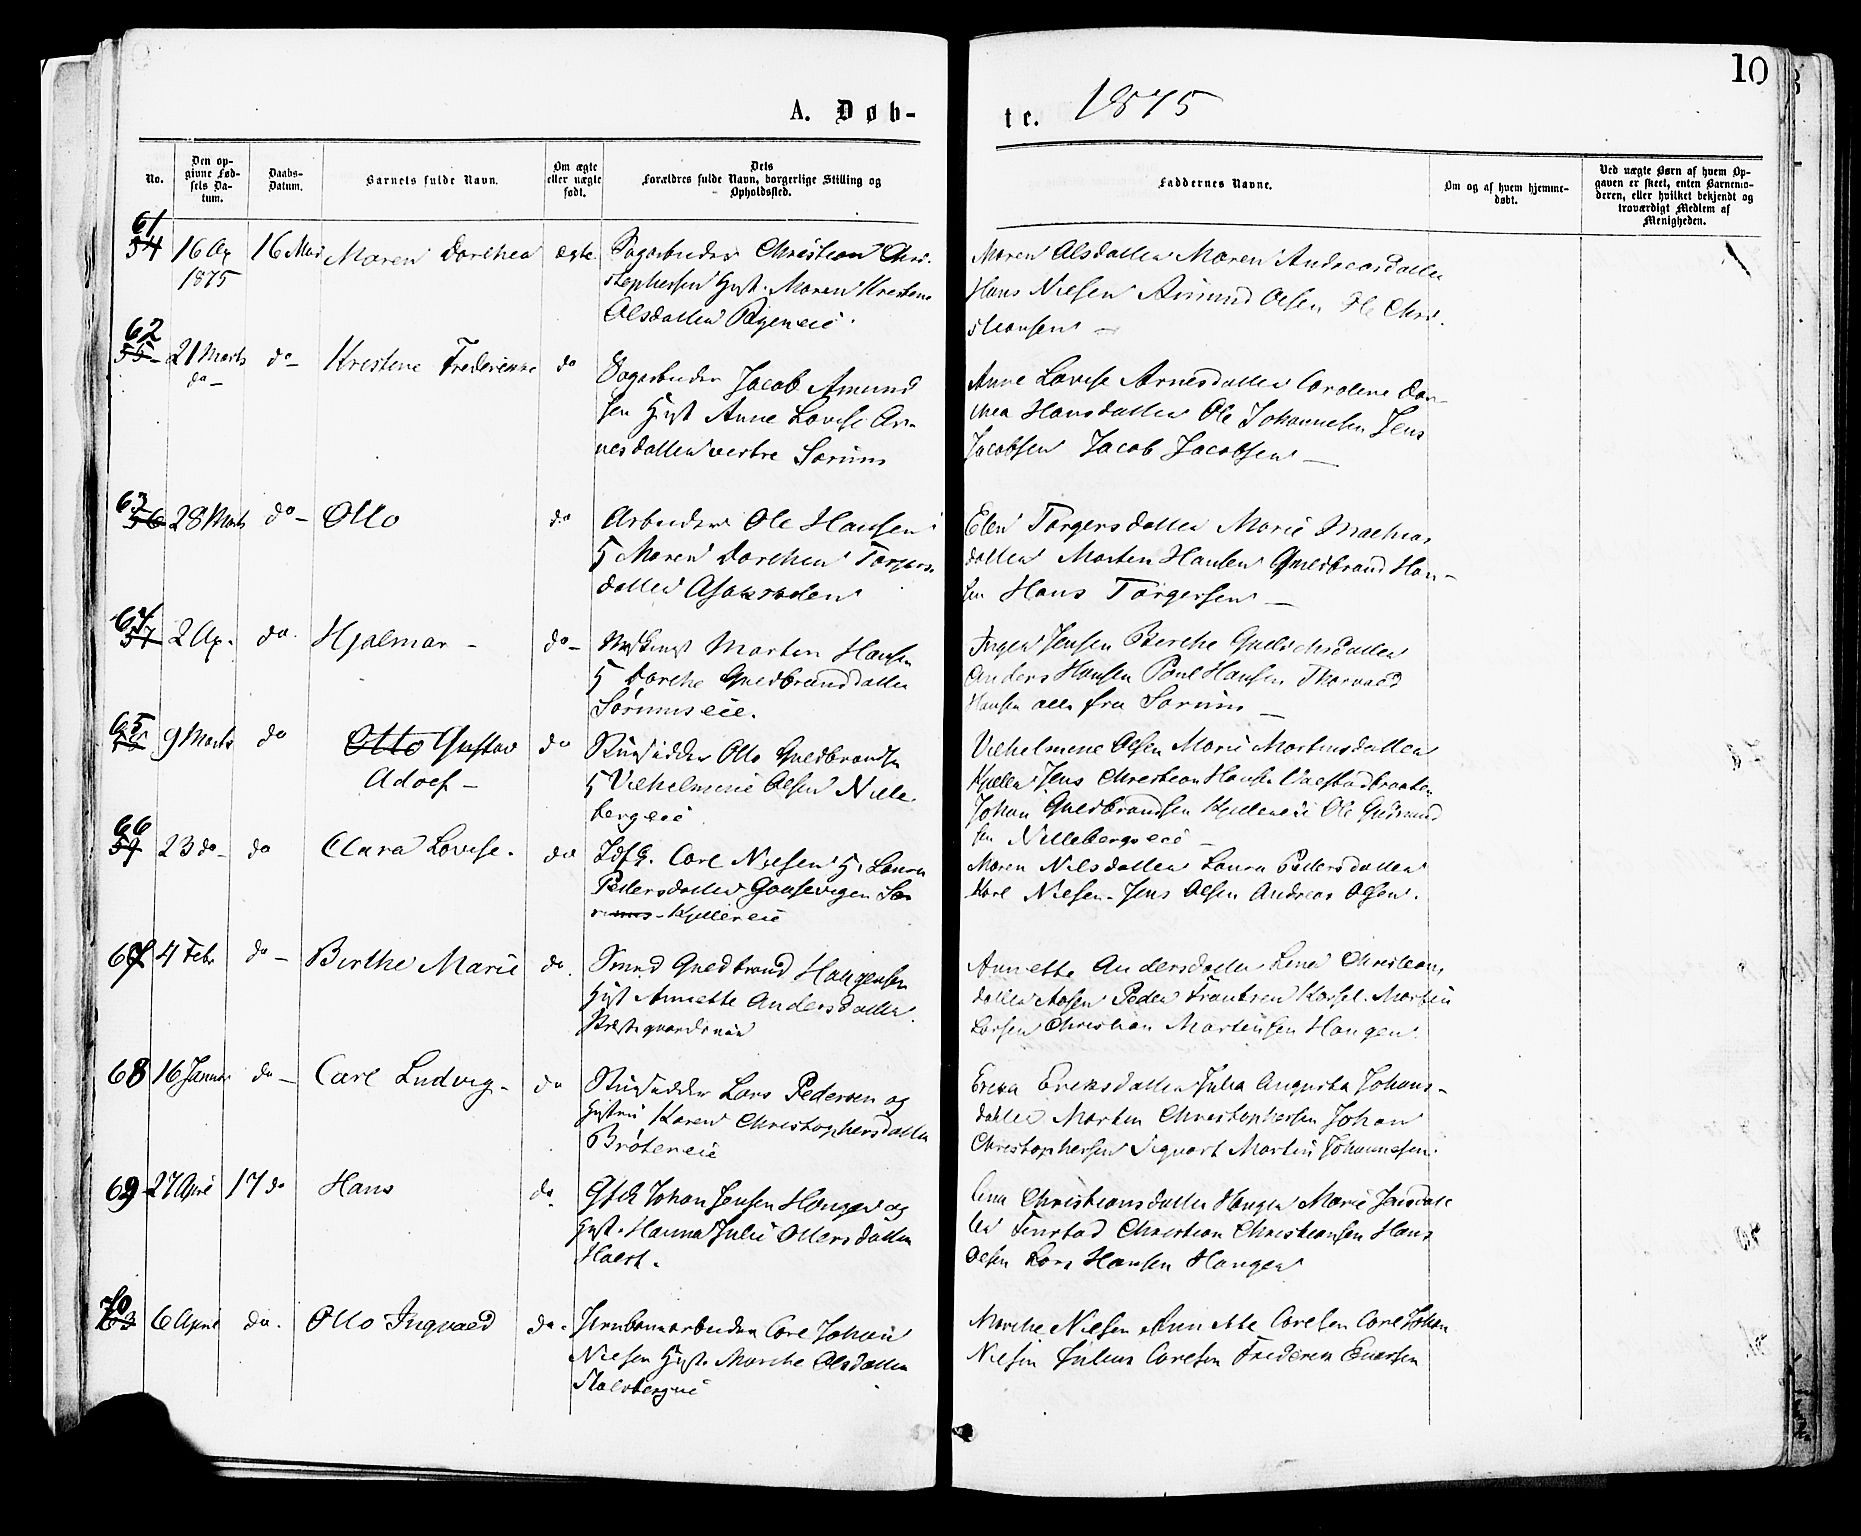 10
A. Døb-
te. 1875
No.
Den op-
givne Fød-
sels Da-
tum.
Daabs-
Datum.
Barnets fulde Navn.
Om ægte
eller uægte
født.
Dets
Forældres fulde Navn, borgerlige Stilling og
Opholdssted.
Faddernes Navne.
Om og af hvem hjemme-
døbt.
Ved uægte Børn af hvem Op-
gaven er skeet, enten Barnemo-
deren, eller hvilket bekjendt og
troværdigt Medlem af
Menigheden.
61
54 16 Ap 16 Mai Maren Dorthea ægte Sagarbeider Christian Chri-
1875
stophersen Hust. Maren Kristine
Olsdatter
Maren Olsdatter Maren Andreasdatter
Hans Nielsen Amund Olsen Ole Chri-
stiansen —
62
55 21 Marts do— Kristine Frederikke do Sagarbeider Jacob Amund
do—
sen Hust Anne Lovise Ar-
nesdatter vestre Sørum
Anne Lovise Arnesdatter Caroline Dor-
thea Hansdatter Ole Johannesen Jens
Jacobsen Jacob Jacobsen —
63
56 28 Marts do— Otto do Arbeider Ole Hansen
H Maren Dorthea Torgers-
datter
Elen Torgersdatter Marie Mathias
datter Morten Hansen Gulbrand Han-
sen Hans Torgersen —
64
57 2 Ap. do. Hjalmar — do— Morten Hansen
H Dorthe Gulbrandsdatter
Sørumseie.
Inger Jensen Berthe
Anders Hansen Poul Hansen Thorvald
Hansen alle fra Sørum —
65
9 Marts do Otto Gustav do Otto Gulbrandsen
Adolf —
H Vilhelmine Olsen Nille-
bergeie
Vilhelmine Olsen Marie Martinsdatter
Kjeller Jens Christian Hansen
Johan Gulbrandsen Kjellereie Ole Gudmund
sen Nillebergseie —
66
59 23 do— do Clara Lovise. do Carl Nielsen H. Laura
Pedersdatter
Kjellereie
Maren Nilsdatter Laura Pedersdatter
Karl Nielsen. Jens Olsen Andreas Olsen.
67 4 Febr do— Birthe Marie do. Smed Gulbrand Haagensen
Hust Annette Andersdatter
Annette Andersdatter Lena Christians
datter Aasen Peder Frantsen Morten
Larsen Christian Martinsen Haugen.
68 16 Januar do— Carl Ludvig — do Lars Pedersen og
Hustru Karen Christophersdatter
Brøtereie
Eriksdatter Julia Augusta Johans-
datter Morten Christophersen Johan
Christophersen Sigvart Martin Johannesen.
69 27 April 17 do Hans do. Johan Jensen Haugen og
Hust. Hanna Julie Ottersdatter
Lina Christiansdatter Haugen Marie Jensdat
ter Christian Christiansen Hans
Olsen Lars Hansen Haugen
70
63 6 April do. Otto Ingvald do. Jernbanearbeider Carl Johan
Nielsen Hust. Marthe Olsdatter
Marthe Nielsen Annette Carlsen Carl Johan
Nielsen Julius Carlsen Frederik